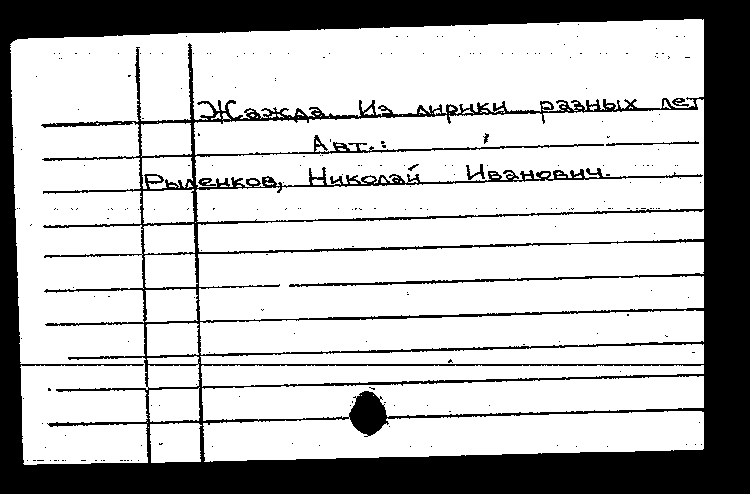 Жажда. Из лирики разных лет
Авт.:
Рыленков, Николай Иванович.